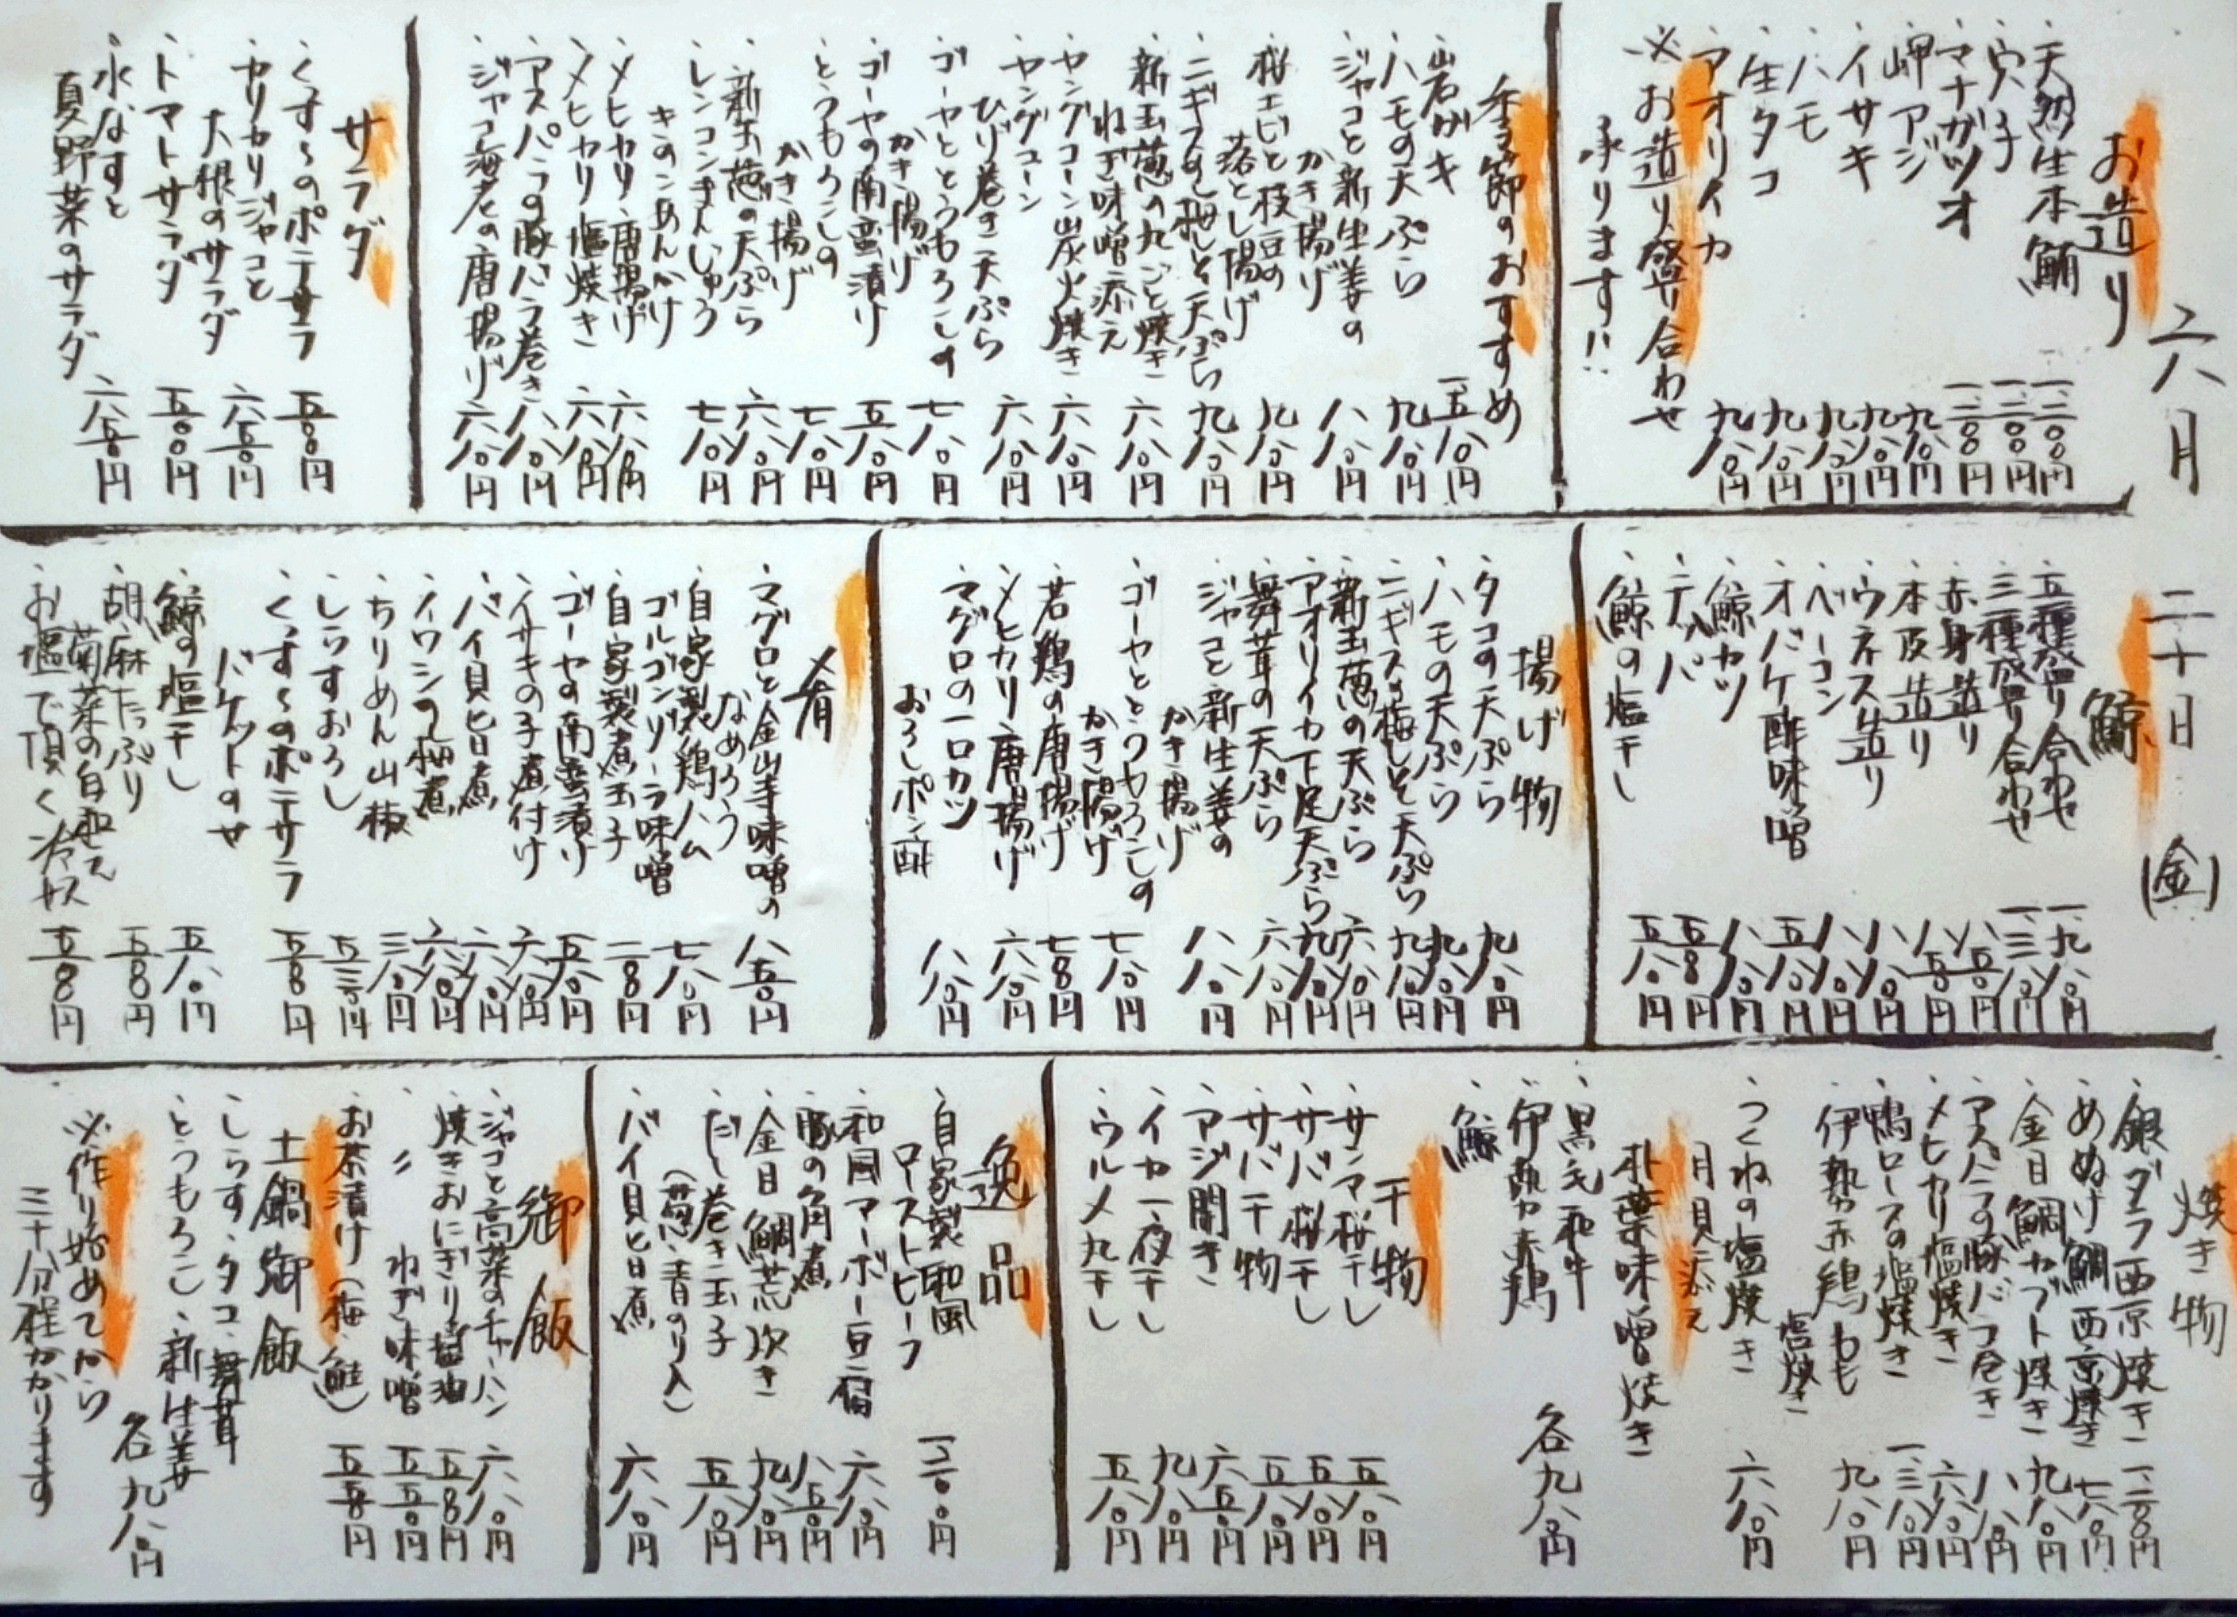 六月二十日(金)
お造り
・天然生本鮪 一、二〇〇円
・穴子 一、二〇〇円
・マナガツオ 一、二〇〇円
・岬アジ 九八〇円
・イサキ 九八〇円
・ハモ 九八〇円
・生タコ 九八〇円
・アオリイカ 九八〇円
※お造り盛り合わせ
承ります!!
季節のおすすめ
・岩ガキ 一、五八〇円
・ハモの天ぷら 九八〇円
・ジャコと新生姜の
かき揚げ 八八〇円
・桜エビと枝豆の
落とし揚げ 九八〇円
・ニギスの梅しそ天ぷら 九八〇円
・新玉葱の丸ごと焼き
ねぎ味噌添え 六八〇円
・ヤングコーン炭火焼き 六八〇円
・ヤングコーン
ひげ巻き天ぷら 六八〇円
・ゴーヤととうもろこしの
かき揚げ 七八〇円
・ゴーヤの南蛮漬け 五八〇円
・とうもろこしの
かき揚げ 七八〇円
・新玉葱の天ぷら 六八〇円
・レンコンまんじゅう
きのこあんかけ 七八〇円
・メヒカリ唐揚げ 六八〇円
・メヒカリ塩焼き 六八〇円
・アスパラの豚バラ巻き 八八〇円
・ジャコ海老の唐揚げ 六八〇円
サラダ
・くずしのポテサラ 五〇〇円
・カリカリジャコと
大根のサラダ 六五〇円
・トマトサラダ 五〇〇円
・水なすと
夏野菜のサラダ 六五〇円
鯨
・五種盛り合わせ 一、九八〇円
・三種盛り合わせ 一、三八〇円
・赤身造り 八五〇円
・本皮造り 八五〇円
・ウネス造り 八八〇円
・ベーコン 八八〇円
・オバケ酢味噌 五八〇円
・鯨カツ 八八〇円
・テッパ 五五〇円
・鯨の塩干し 五八〇円
揚げ物
・タコの天ぷら 九八〇円
・ハモの天ぷら 九八〇円
・ニギスの梅しそ天ぷら 九八〇円
・新玉葱の天ぷら 六八〇円
・アオリイカ下足天ぷら 九八〇円
・舞茸の天ぷら 六八〇円
・ジャコと新生姜の
かき揚げ 八八〇円
・ゴーヤととうもろこしの
かき揚げ 七八〇円
・若鶏の唐揚げ 七五〇円
・メヒカリ唐揚げ 六八〇円
・マグロの一口カツ
おろしポン酢 八八〇円
肴
・マグロと金山寺味噌の
なめろう 八五〇円
・自家製鶏ハム
ゴルゴンゾーラ味噌 七八〇円
・自家製煮玉子 二五〇円
・ゴーヤの南蛮漬け 五八〇円
・イサキの子煮付け 六八〇円
・バイ貝旨煮 六八〇円
・イワシの梅煮 六八〇円
・ちりめん山椒 三八〇円
・しらすおろし 五三〇円
・くずしのポテサラ
バケットのせ 五五〇円
・鯨の塩干し 五八〇円
・胡麻たっぷり
菊菜の白和え 五五〇円
・お塩で頂く冷ヤス 五五〇円
焼き物
・銀ダラ西京焼き 一、二〇〇円
・めぬけ鯛西京焼き 七八〇円
・金目鯛カブト焼き 九八〇円
・アスパラの豚バラ巻き 八八〇円
・メヒカリ塩焼き 六八〇円
・鴨ロースの塩焼き 一、三八〇円
・伊勢赤鶏もも
塩焼き 九八〇円
・つくねの塩焼き
月見添え 六八〇円
朴葉味噌焼き
・黒毛和牛
・伊勢赤鶏
・鯨
各九八〇円
干物
・サンマ桜干し 五八〇円
・サバ桜干し 五八〇円
・サバ干物 五八〇円
・アジ開き 六五〇円
・イカ一夜干し 九八〇円
・ウルメ丸干し 五八〇円
逸品
・自家製和風
ローストビーフ 一、二〇〇円
・和風マーボー豆腐 六八〇円
・豚の角煮 八五〇円
・金目鯛荒炊き 九八〇円
・だし巻き玉子
(葱・青のり入) 五八〇円
・バイ貝旨煮 六八〇円
御飯
・ジャコと高菜のチャーハン 六八〇円
・焼きおにぎり醤油 五五〇円
・〃 ねぎ味噌 五五〇円
・お茶漬け(梅・鮭) 五五〇円
土鍋御飯
・しらす・タコ・舞茸
・とうもろこし・新生姜
各九八〇円
※作り始めてから
三十分程かかります